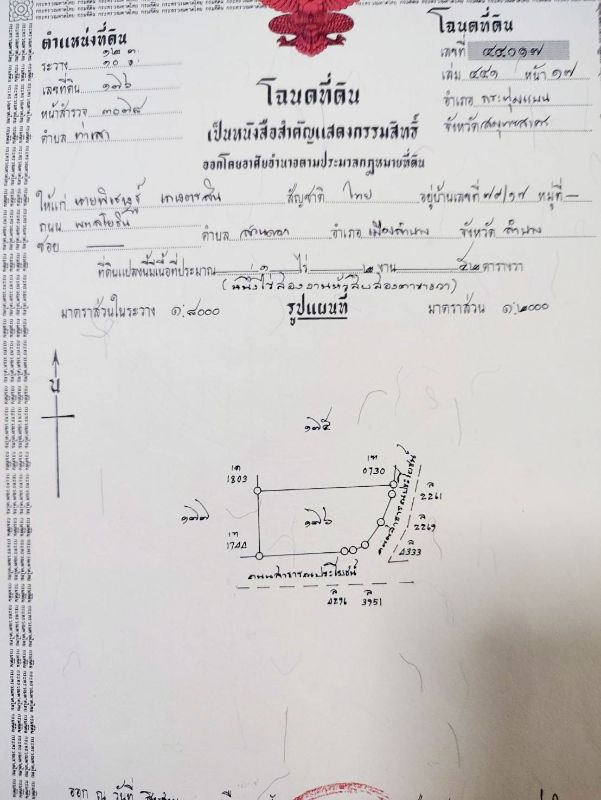 ตำแหน่งที่ดิน
ระวาง
เลขที่ดิน ๑๗๖
หน้าสำรวจ ๓๐๗๘
ตำบล ท่าเสา
โฉนดที่ดิน
เลขที่ ๔๔๐๑๗
เล่ม ๔๔๑ หน้า ๑๗
อำเภอ กระทุ่มแบน
จังหวัด สมุทรสาคร
โฉนดที่ดิน
เป็นหนังสือสำคัญแสดงกรรมสิทธิ์
ออกโดยอาศัยอำนาจตามประมวลกฎหมายที่ดิน
ให้แก่ นาย สัญชาติ ไทย อยู่บ้านเลขที่ ๗๙/๑๗ หมู่ที่ –
ถนน พหลโยธิน
ซอย — ตำบล สวนดอก อำเภอ เมืองลำปาง จังหวัด ลำปาง
ที่ดินแปลงนี้มีเนื้อที่ประมาณ ๑ ไร่ ๒ งาน ๕๒ ตารางวา
(หนึ่งไร่สองงานห้าสิบสองตารางวา)
มาตราส่วนในระวาง ๑:๔๐๐๐ รูปแผนที่ มาตราส่วน ๑:๒๐๐๐
น
๑๗๕
1803
0730
๑๗๗
๑๗๖
ถนนสาธารณประโยชน์
ล
2261
ล
2269
ล
4333
1744
ถนนสาธารณประโยชน์
ล ล
4296 3951
ออก ณ วันที่